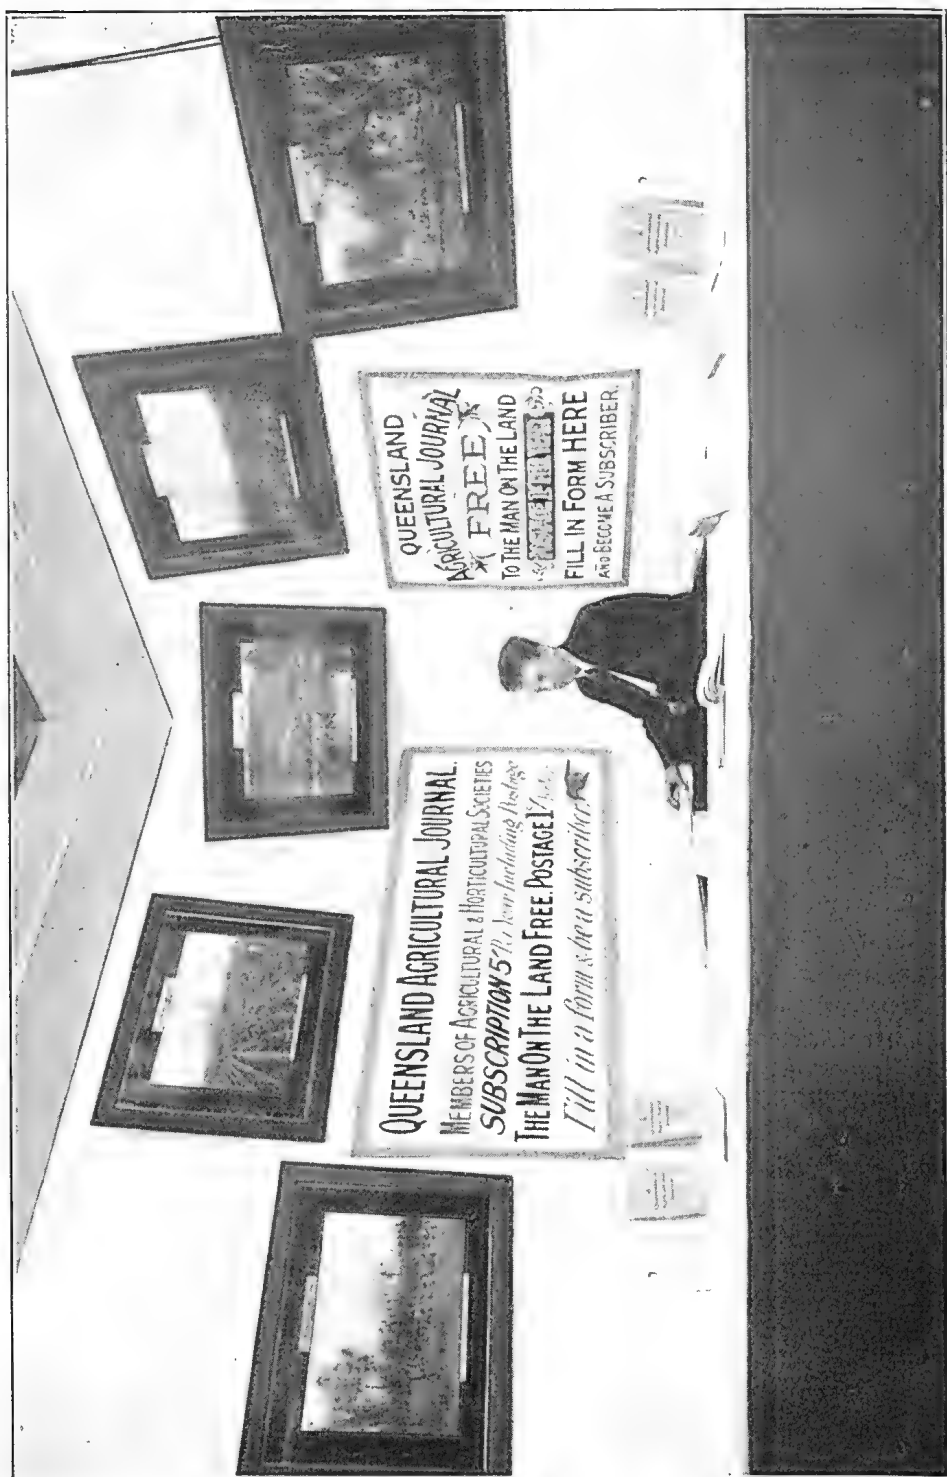 QUEENSLAND AGRICULTURAL JOURNAL.
MEMBERS OF AGRICULTURAL & HORTICULTURAL SOCIETIES
SUBSCRIPTION 5/- Including Postage
THE MAN ON THE LAND FREE. POSTAGE 1/-
Fill in a form & be a subscriber.
QUEENSLAND
AGRICULTURAL JOURNAL
FREE
TO THE MAN ON THE LAND
FILL IN FORM HERE
AND BECOME A SUBSCRIBER.